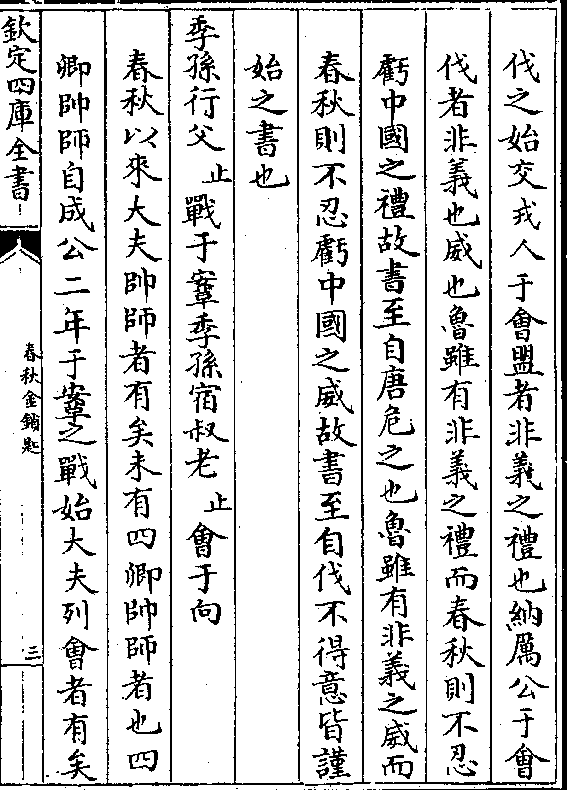 伐之始交戎人于會盟者非義之禮也納厲公于會
伐者非義也威也魯雖有非義之禮而春秋則不忍
虧中國之禮故書至自唐危之也魯雖有非義之威而
春秋則不忍虧中國之威故書至自伐不得意皆謹
始之書也
季孫行父止戰于鞌季孫宿叔老止會于向
春秋以來大夫帥師者有矣未有四卿帥師者也四
卿帥師自成公二年于鞌之戰始大夫列會者有矣
欽定四庫全書
春秋金鎖匙
三